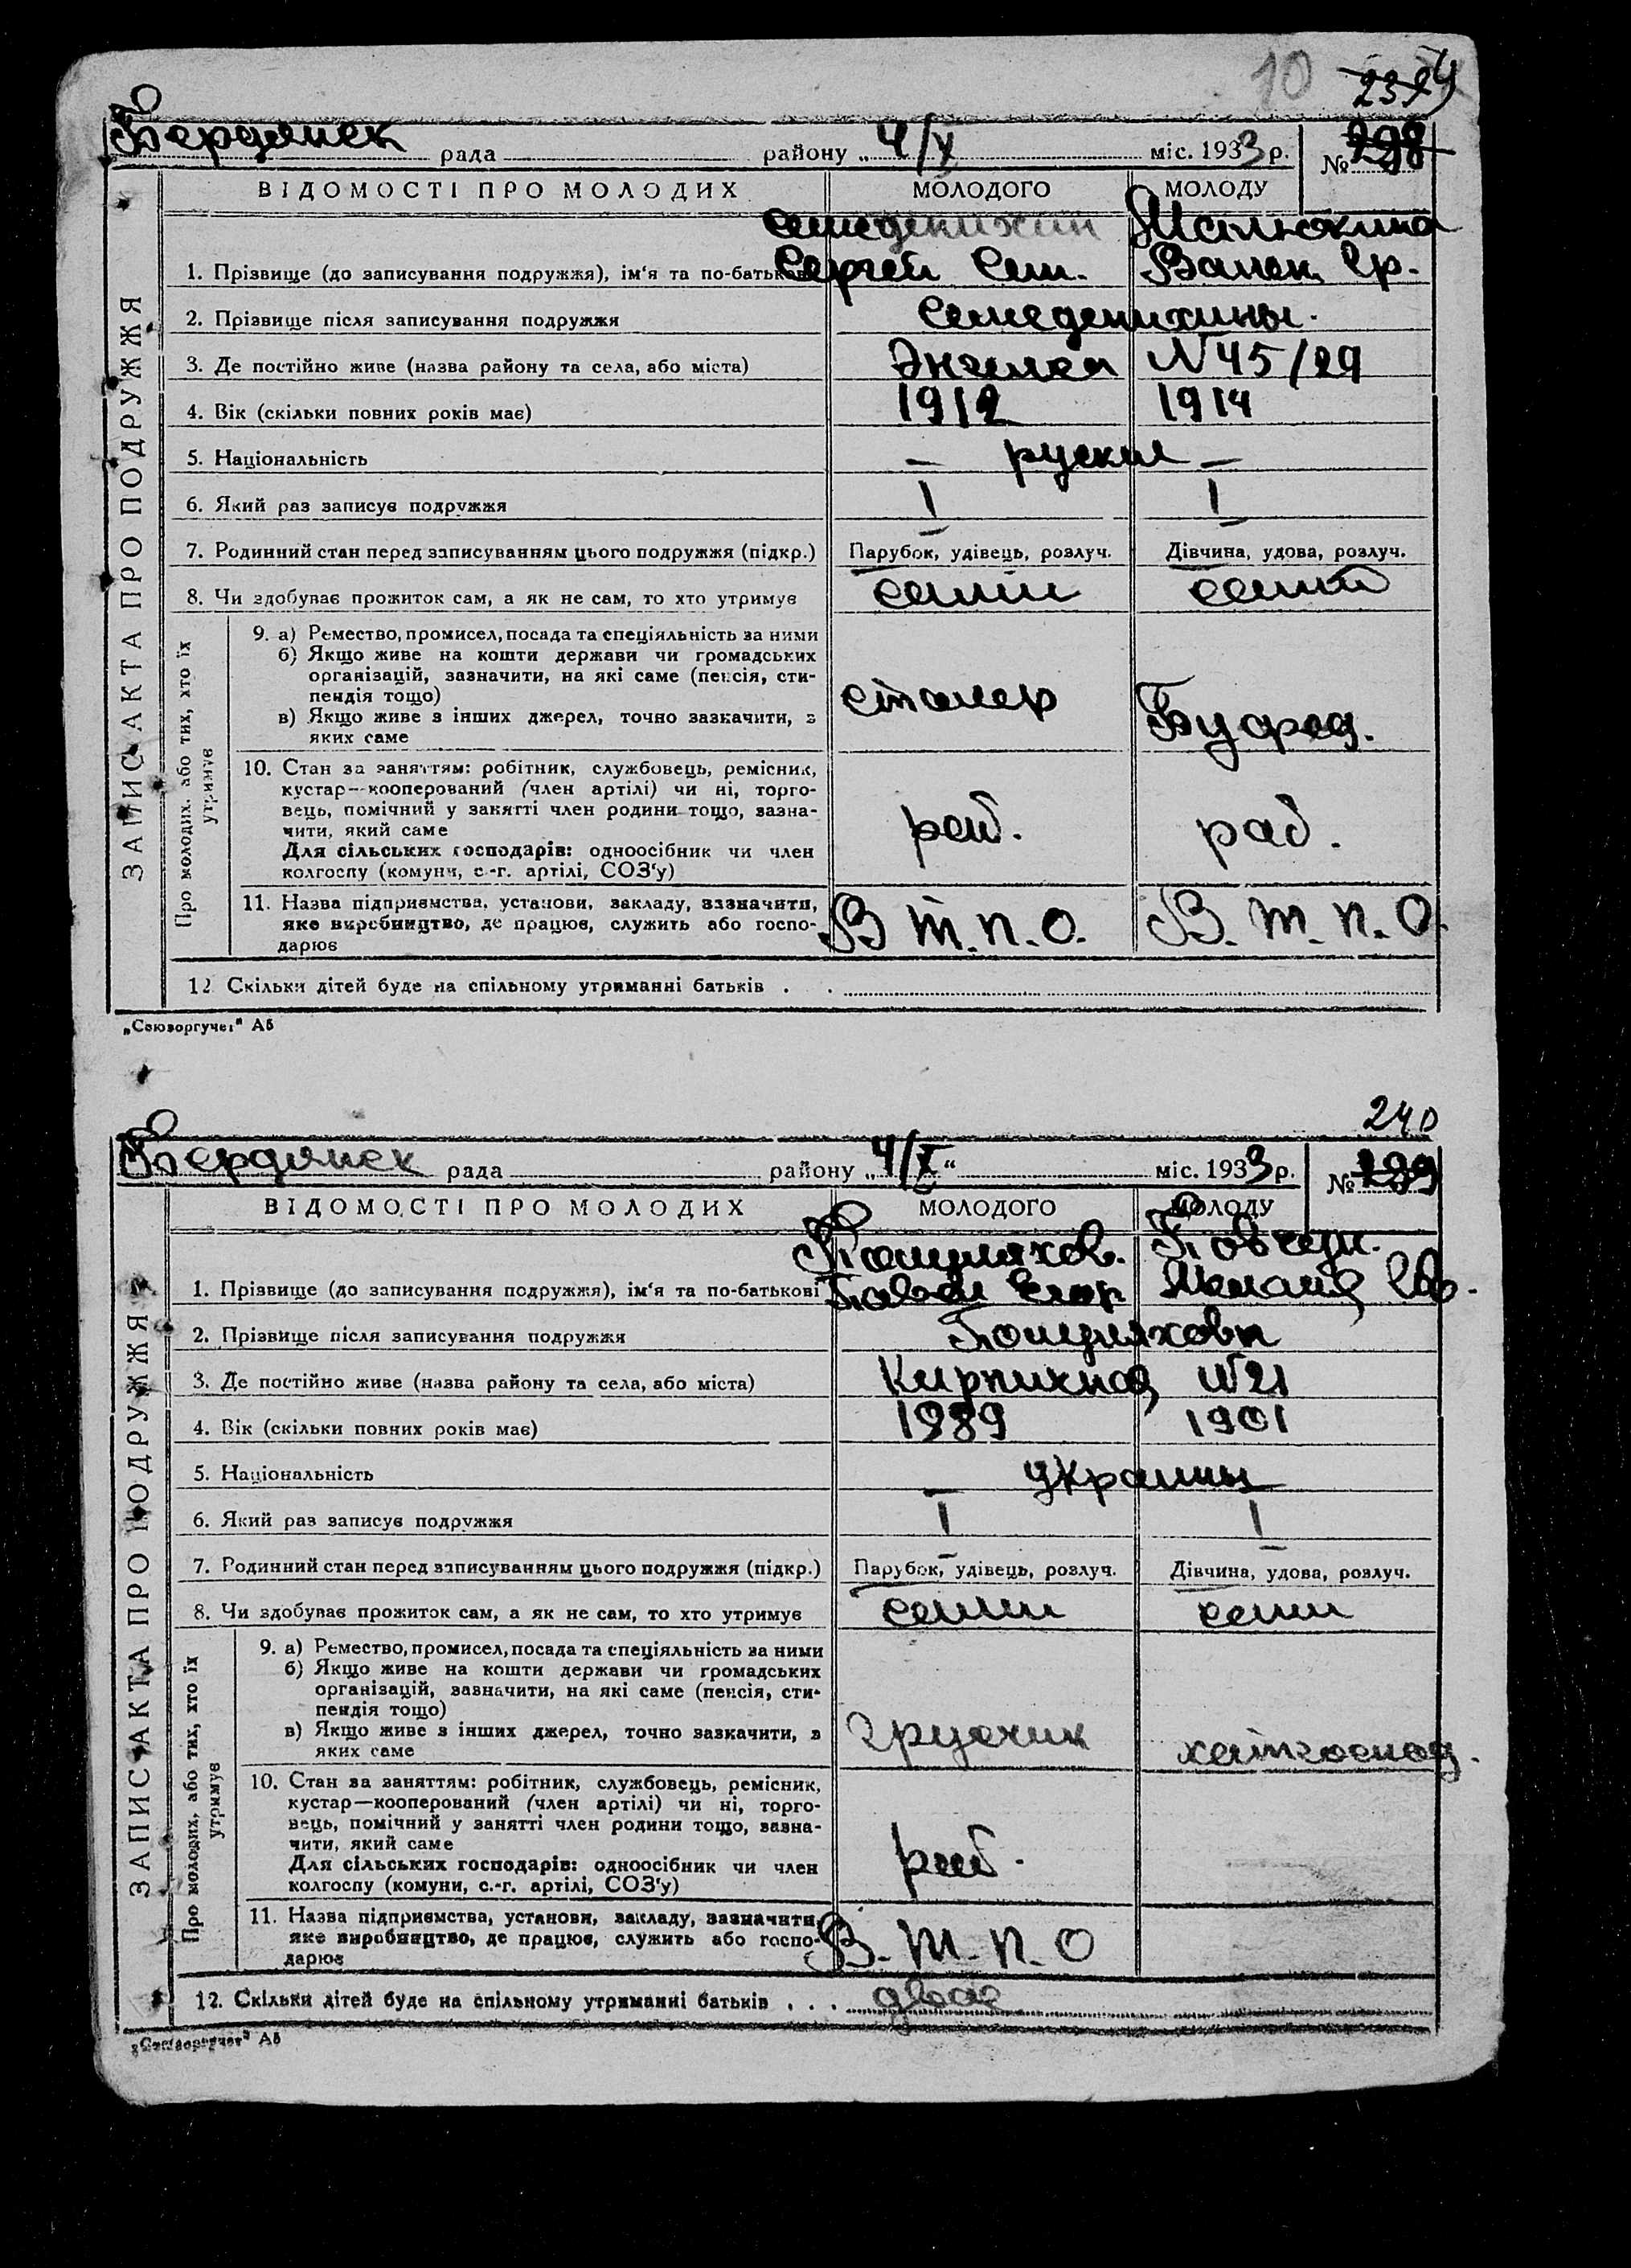 10 239
Бердянск рада район у „ 4/X міс. 1933 р. № 298
ВІДОМОСТІ ПРО МОЛОДИХ МОЛОДОГО МОЛОДУ
Семеденихин Малюкина
1. Прізвище (до записування подружжя), ім'я та по-батькові Сергей Сем. Вален. Гр.
2. Прізвище після записування подружжя Семеденихины.
3. Де постійно живе (назва району та села, або міста) Энгельса N 45/29
4. Вік (скільки повних років має) 1912 1914
5. Національність — руские —
6. Який раз записує подружжя I I
7. Родинний стан перед записуванням цього подружжя (підкр.) Парубок, удівець, розлуч. Дівчина, удова, розлуч.
8. Чи здобуває прожиток сам, а як не сам, то хто утримує
ЗАПИС АКТА ПРО ПОДРУЖЖЯ
Про молодих, або тих, хто їх утримує
9. а) Ремество, промисел, посада та спеціяльність за ними
б) Якщо живе на кошти держави чи громадських
організацій, зазначити, на які саме (пенсія, сти-
пендія тощо) столяр
в) Якщо живе з інших джерел, точно зазначити, з Буфет.
яких саме
10. Стан за заняттям: робітник, службовець, ремісник,
кустар—кооперований (член артілі) чи ні, торго-
вець, помічний у занятті член родини тощо, зазна-
чити, який саме раб. раб.
Для сільських господарів: одноосібник чи член
колгоспу (комуни, с.-г. артілі, СОЗ'у)
11. Назва підприємства, установи, закладу, зазначити,
яке виробництво, де працює, служить або госпо- В т.п.о. В. т.п.о.
дарює
12. Скільки дітей буде на спільному утриманні батьків . .
„Союзоргучет" Аб
240
Бердянск рада району „ 4/X “ міс. 1933 р. № 299
ВІДОМОСТІ ПРО МОЛОДИХ МОЛОДОГО МОЛОДУ
1. Прізвище (до записування подружжя), ім'я та по-батькові Павел Егор.
2. Прізвище після записування подружжя
3. Де постійно живе (назва району та села, або міста) Кирпичная N21
4. Вік (скільки повних років має) 1989 1901
5. Національність украинцы
6. Який раз записує подружжя I I
7. Родинний стан перед записуванням цього подружжя (підкр.) Парубок, удівець, розлуч. Дівчина, удова, розлуч.
8. Чи здобуває прожиток сам, а як не сам, то хто утримує
ЗАПИС АКТА ПРО ПОДРУЖЖЯ
Про молодих, або тих, хто їх утримує
9. а) Ремество, промисел, посада та спеціяльність за ними
б) Якщо живе на кошти держави чи громадських
організацій, зазначити, на які саме (пенсія, сти-
пендія тощо)
в) Якщо живе з інших джерел, точно зазначити, з грузчик хатгоспод.
яких саме
10. Стан за заняттям: робітник, службовець, ремісник,
кустар—кооперований (член артілі) чи ні, торго-
вець, помічний у занятті член родини тощо, зазна-
чити, який саме
Для сільських господарів: одноосібник чи член раб.
колгоспу (комуни, с.-г. артілі, СОЗ'у)
11. Назва підприємства, установи, закладу, зазначити,
яке виробництво, де працює, служить або госпо- В. т.п.о
дарює
12. Скільки дітей буде на спільному утриманні батьків . . . двое
„Союзоргучет" Аб